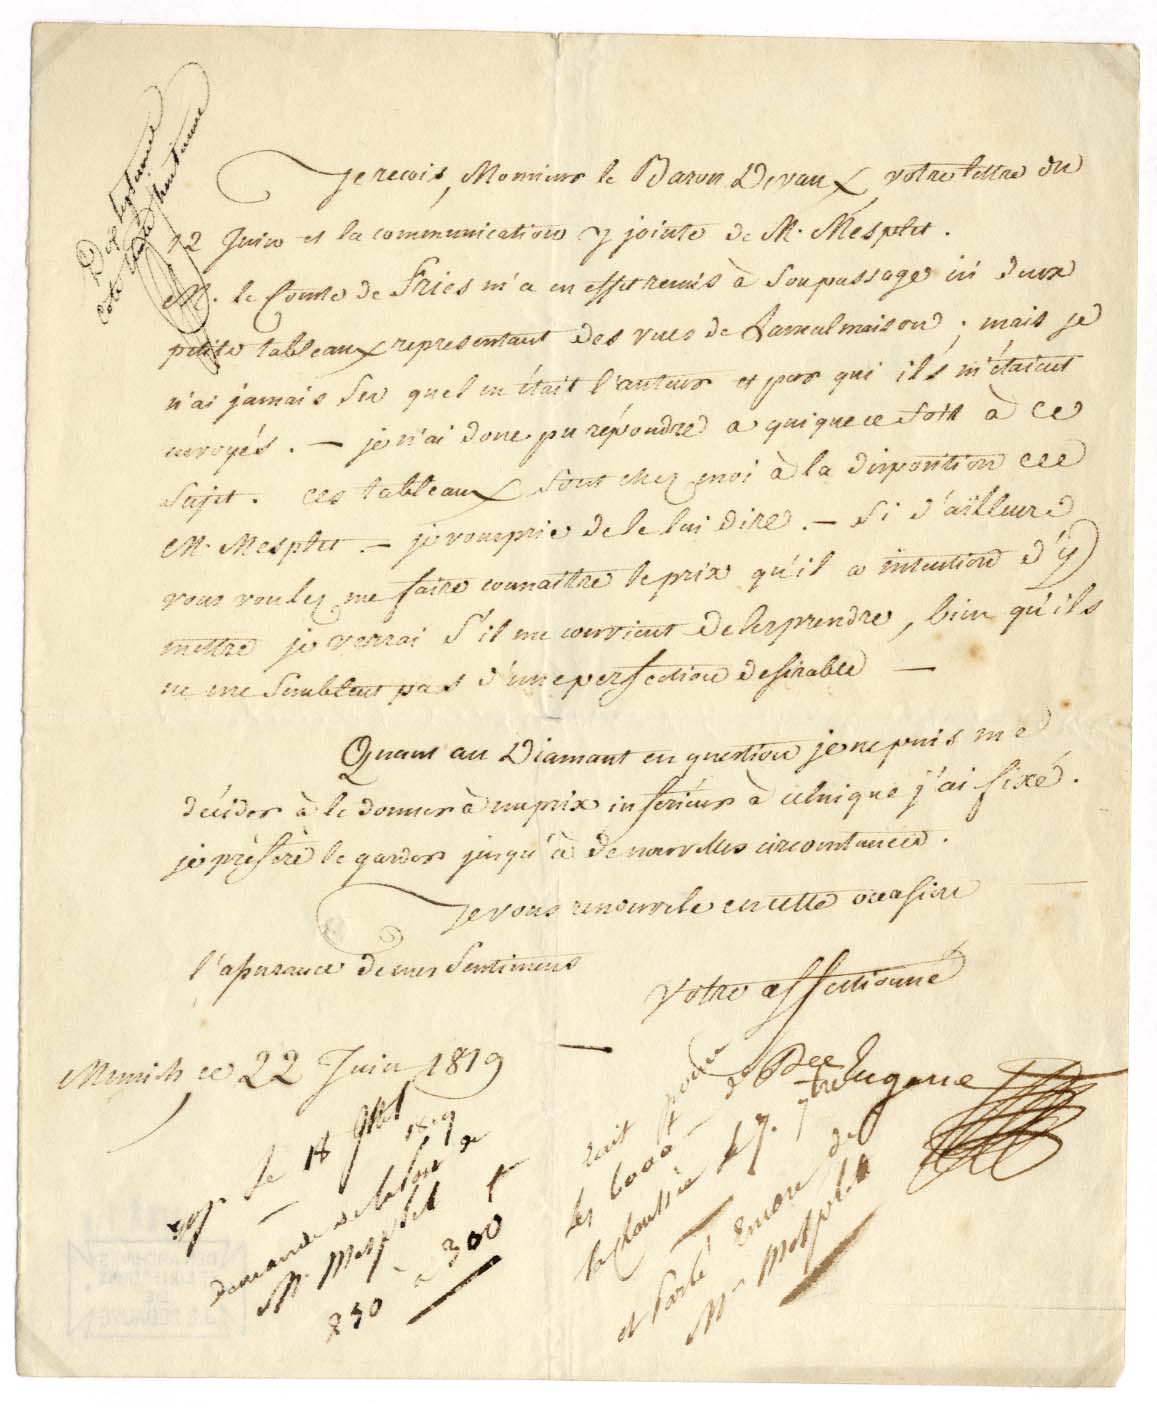 Je reçois, Monsieur le Baron Devaux, votre lettre du
12 Juin et la communication y jointe de M. Mesplet.
M. le Comte de Fries m'a en effet remis à son passage ici deux
petits tableaux representant des vues de Lamalmaison; mais je
n'ai jamais su quel en était l'auteur et par qui ils m'étaient
envoyés. — je n'ai donc pu répondre a qui que ce soit à ce
sujet. ces tableaux sont chez moi à la disposition de
M. Mesplet — je vous prie de le lui dire. — Si d'ailleurs
vous voulez me faire connaître le prix qu'il a intention d'y
mettre je verrai s'il me convient de les prendre, bien qu'ils
ne me semblent pas d'une perfection desirable —
Quant au Diamant en question je ne puis me
décider à le donner à un prix inférieur à celui que j'ai fixé.
je préfère le garder jusqu'à de nouvelles circonstances.
Je vous renouvele en cette occasion
l'assurance de mes sentimens
Votre affectionné
Eugene
Munich ce 22 Juin 1819
le 18
1819
demande de
M. Mesplet
250 à 300 f
les 6000
et parlé encore de
M. Mesplet